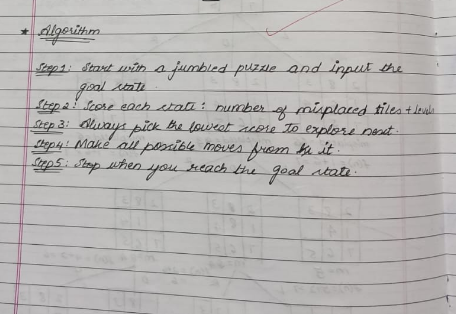 * Algorithm
Step 1: Start with a jumbled puzzle and input the
goal state.
Step 2: Score each state: number of misplaced tiles + levels
Step 3: Always pick the lowest score to explore next.
Step 4: Make all possible moves from it.
Step 5: Stop when you reach the goal state.